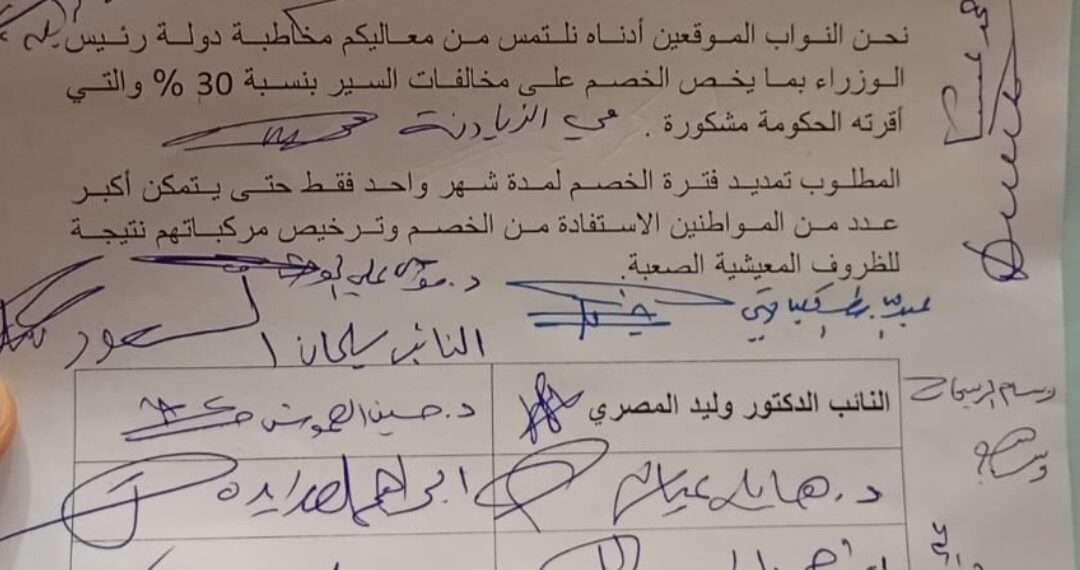 نحن النواب الموقعين أدناه نلتمس من معاليكم مخاطبة دولة رئيس
الوزراء بما يخص الخصم على مخالفات السير بنسبة 30 % والتي
أقرته الحكومة مشكورة . مي الزيادنة
المطلوب تمديد فترة الخصم لمدة شهر واحد فقط حتى يتمكن أكبر
عدد من المواطنين الاستفادة من الخصم وترخيص مركباتهم نتيجة
للظروف المعيشية الصعبة.
د. موسى علي الوحش
النائب سليمان السعود
النائب الدكتور وليد المصري
د. حسين العموش
د. هايل عياش
ابراهيم الصرايرة
وسام الربيحات